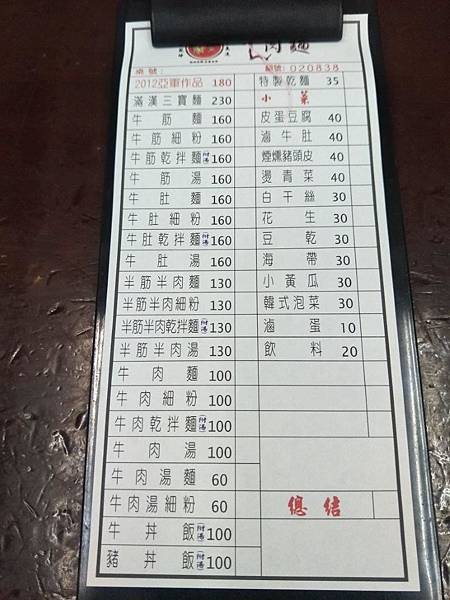 肉麵
桌號：
編號：020838
2012亞軍作品 180
滿漢三寶麵 230
牛筋麵 160
牛筋細粉 160
牛筋乾拌麵附湯 160
牛筋湯 160
牛肚麵 160
牛肚細粉 160
牛肚乾拌麵附湯 160
牛肚湯 160
半筋半肉麵 130
半筋半肉細粉 130
半筋半肉乾拌麵附湯 130
半筋半肉湯 130
牛肉麵 100
牛肉細粉 100
牛肉乾拌麵附湯 100
牛肉湯 100
牛肉湯麵 60
牛肉湯細粉 60
牛丼飯附湯 100
豬丼飯附湯 100
特製乾麵 35
小菜
皮蛋豆腐 40
滷牛肚 40
煙燻豬頭皮 40
燙青菜 40
白干絲 30
花生 30
豆乾 30
海帶 30
小黃瓜 30
韓式泡菜 30
滷蛋 10
飲料 20
總結